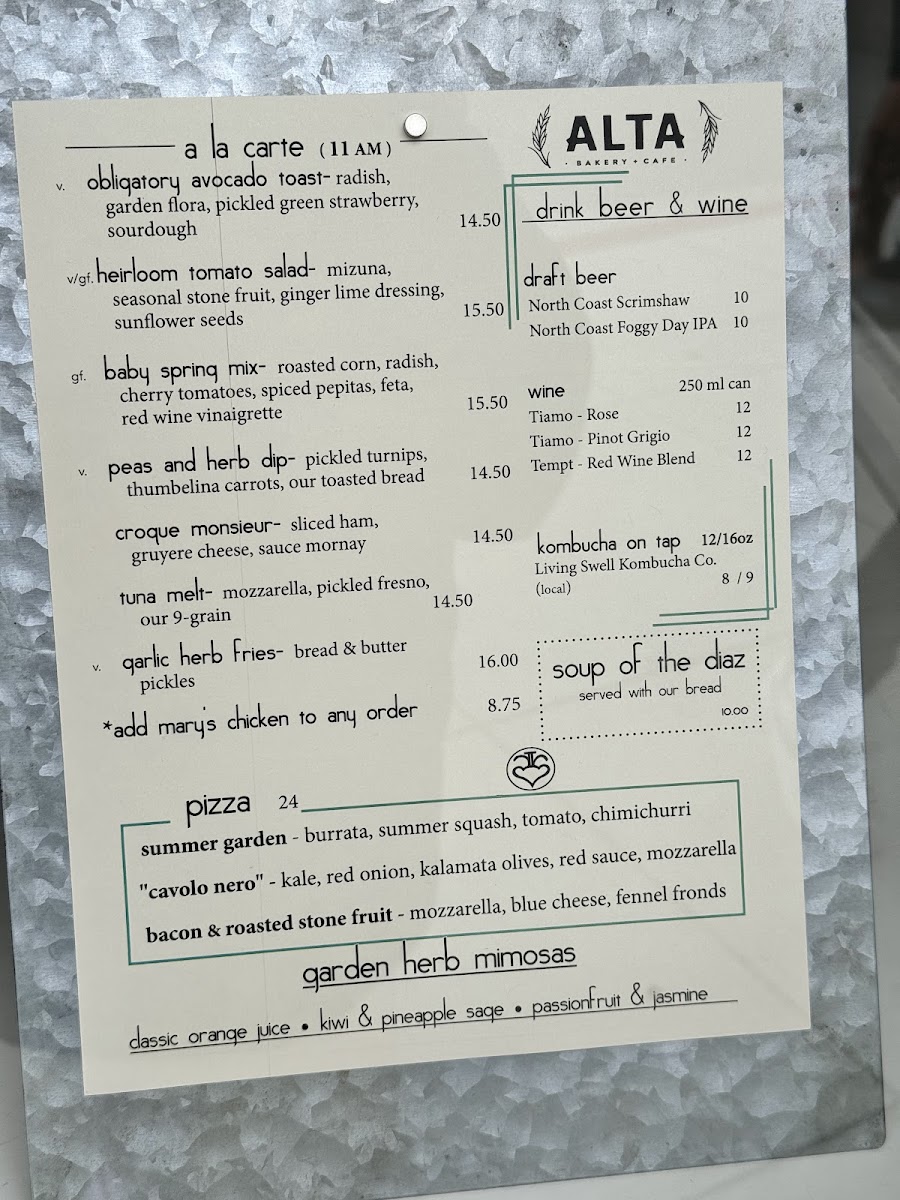 a la carte (11 AM)
v. obligatory avocado toast- radish,
garden flora, pickled green strawberry,
sourdough 14.50
v/gf. heirloom tomato salad- mizuna,
seasonal stone fruit, ginger lime dressing,
sunflower seeds 15.50
gf. baby spring mix- roasted corn, radish,
cherry tomatoes, spiced pepitas, feta,
red wine vinaigrette 15.50
v. peas and herb dip- pickled turnips,
thumbelina carrots, our toasted bread 14.50
croque monsieur- sliced ham,
gruyere cheese, sauce mornay 14.50
tuna melt- mozzarella, pickled fresno,
our 9-grain 14.50
v. garlic herb fries- bread & butter
pickles 16.00
*add mary's chicken to any order 8.75
ALTA
· BAKERY + CAFE ·
drink beer & wine
draft beer
North Coast Scrimshaw 10
North Coast Foggy Day IPA 10
wine 250 ml can
Tiamo - Rose 12
Tiamo - Pinot Grigio 12
Tempt - Red Wine Blend 12
kombucha on tap 12/16oz
Living Swell Kombucha Co.
(local) 8 / 9
soup of the diaz
served with our bread
10.00
pizza 24
summer garden - burrata, summer squash, tomato, chimichurri
"cavolo nero" - kale, red onion, kalamata olives, red sauce, mozzarella
bacon & roasted stone fruit - mozzarella, blue cheese, fennel fronds
garden herb mimosas
classic orange juice • kiwi & pineapple sage • passionfruit & jasmine